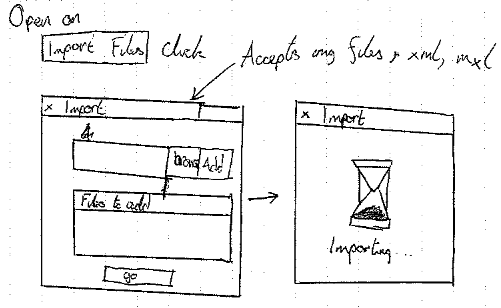 Open on
Import Files click
Accepts any files, xml, mxl
x Import
Browse Add
Files to add
go
x Import
Importing...